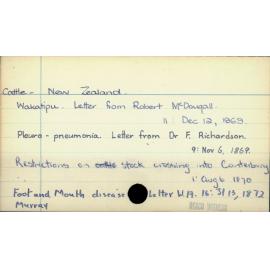 Cattle - New Zealand.
Wakatipu. Letter from Robert McDougall.
11: Dec 12, 1869.
Pleuro-pneumonia. Letter from Dr F. Richardson.
9: Nov 6, 1869.
Restrictions on cattle stock crossing into Canterbury
1: Aug 6 1870
Foot and Mouth disease Letter W.A. 16: 3/13, 1872
Murray